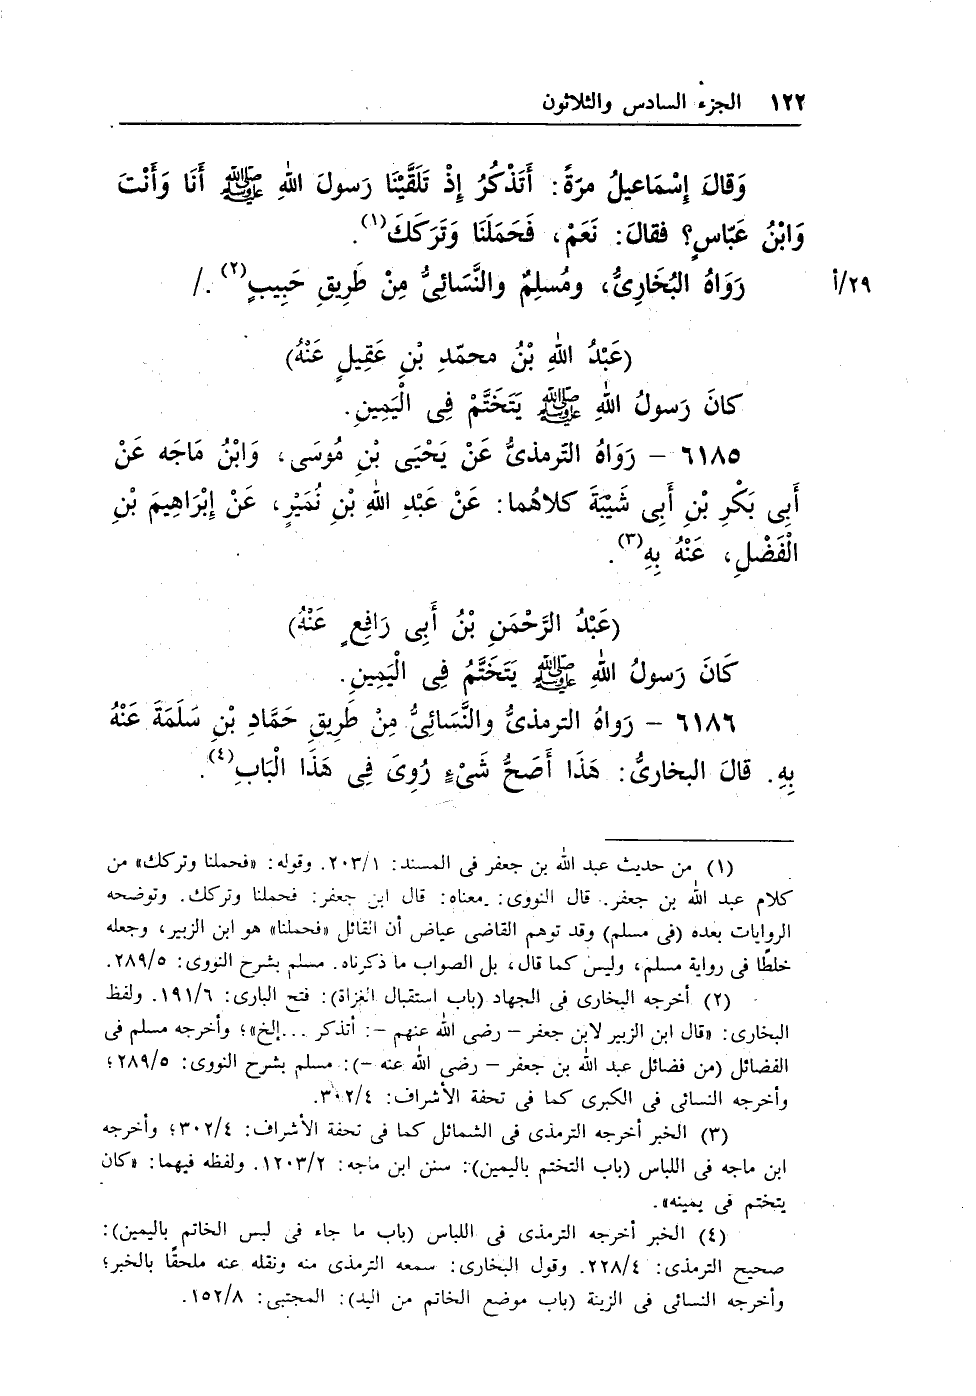 ١٢٢ الجزء السادس والثلاثون
وَقالَ إِسْمَاعيلُ مرَةً: أَتَذْكُرُ إِذْ تَلَقَّيْنَا رَسولَ اللهِ ﷺ أَنَا وَأَنْتَ
وَابْنُ عَبّاسٍ؟ فقالَ: نَعَمْ، فَحَمَلَنَا وَتَرَكَكَ(١).
رَوَاهُ البُخَارِىُّ، ومُسلِمٌ والنَّسَائِىُّ مِنْ طَرِيقِ حَبِيبٍ(٢)./
٢٩/أ
(عَبْدُ اللهِ بْنُ محمّد بْنِ عَقِيلٍ عَنْهُ)
كانَ رَسولُ اللهِ ﷺ يَتَخَتَّمْ فِى الْيَمِينِ.
٦١٨٥ – رَوَاهُ التِرمذىُّ عَنْ يَحْيَى بْنِ مُوسَى، وَابْنُ مَاجَه عَنْ
أَبِى بَكْرِ بْنِ أَبِى شَيْبَةَ كلاهُما: عَنْ عَبْدِ اللهِ بْنِ نُمَيْرٍ، عَنْ إِبْرَاهِيمَ بْنِ
الْفَضْلِ، عَنْهُ بِهِ(٣).
(عَبْدُ الرَّحْمَنِ بْنُ أَبِى رَافِعٍ عَنْهُ)
كَانَ رَسولُ اللهِ ﷺ يَتَخَتَّمُ فِى الْيَمِينِ.
٦١٨٦ – رَواهُ الترمذىُّ والنَّسَائِىُّ مِنْ طَرِيقِ حَمَّادِ بْنِ سَلَمَةَ عَنْهُ
بِهِ. قالَ البخارىُّ: هَذَا أَصَحُّ شَىْءٍ رُوِىَ فِى هَذَا الْبَابِ(٤).
(١) من حديث عبد الله بن جعفر فى المسند: ٢٠٣/١. وقوله: «فحملنا وتركك» من
كلام عبد الله بن جعفر. قال النووى: معناه: قال ابن جعفر: فحملنا وتركك. وتوضحه
الروايات بعده (فى مسلم) وقد توهم القاضى عياض أن القائل «فحملنا» هو ابن الزبير، وجعله
خلطًا فى رواية مسلم، وليس كما قال، بل الصواب ما ذكرناه. مسلم بشرح النووى: ٢٨٩/٥.
(٢) أخرجه البخارى فى الجهاد (باب استقبال الغزاة): فتح البارى: ١٩١/٦. ولفظ
البخارى: «قال ابن الزبير لابن جعفر – رضى الله عنهم –: أتذكر ...إلخ»؛ وأخرجه مسلم فى
الفضائل (من فضائل عبد الله بن جعفر – رضى الله عنه –): مسلم بشرح النووى: ٢٨٩/٥؛
وأخرجه النسائى فى الكبرى كما فى تحفة الأشراف: ٣٠٢/٤.
(٣) الخبر أخرجه الترمذى فى الشمائل كما فى تحفة الأشراف: ٣٠٢/٤؛ وأخرجه
ابن ماجه فى اللباس (باب التختم باليمين): سنن ابن ماجه: ١٢٠٣/٢. ولفظه فيهما: «كان
يتختم فى يمينه».
(٤) الخبر أخرجه الترمذى فى اللباس (باب ما جاء فى لبس الخاتم باليمين):
صحيح الترمذى: ٢٢٨/٤. وقول البخارى: سمعه الترمذى منه ونقله عنه ملحقًا بالخبر؛
وأخرجه النسائى فى الزينة (باب موضع الخاتم من اليد): المجتبى: ١٥٢/٨.